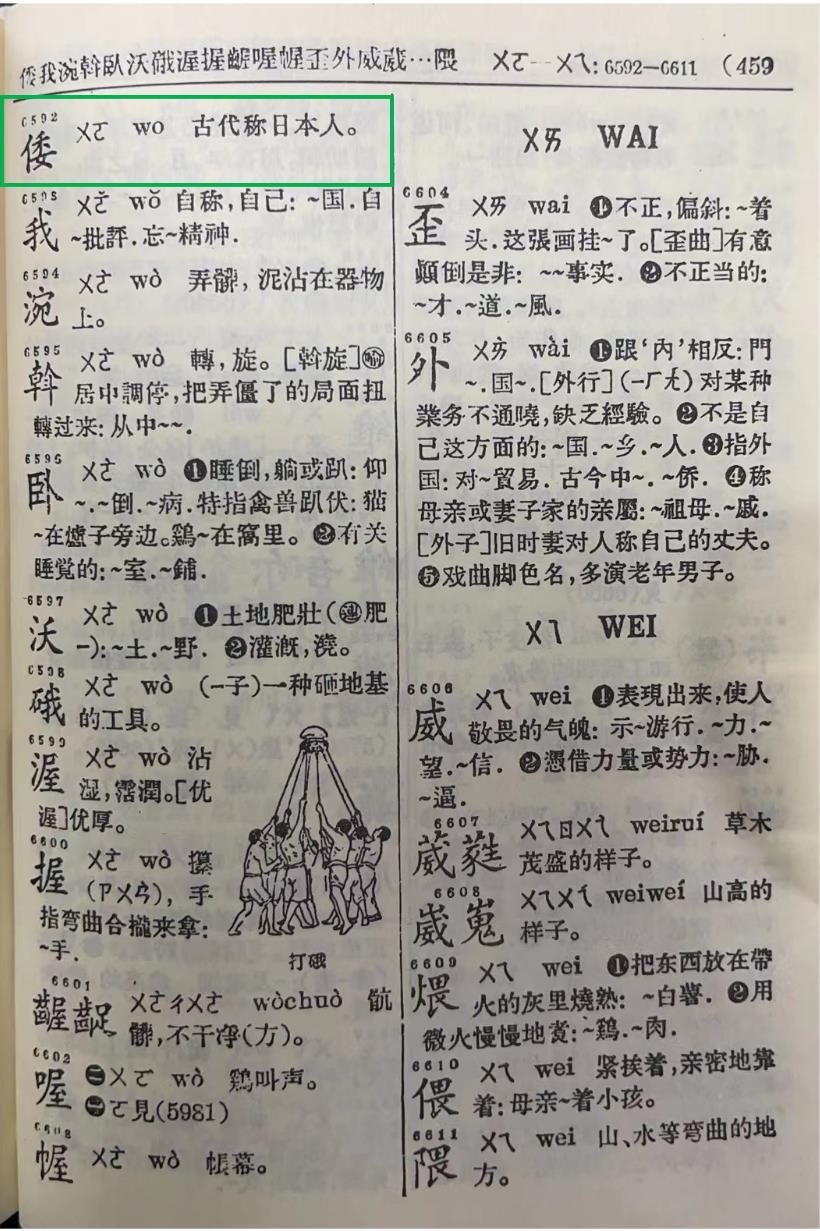 倭我涴斡臥沃硪渥握齷喔幄歪外威葳…隈 ㄨㄛ—ㄨㄟ:6592—6611 (459
6592
倭 ㄨㄛ wo 古代称日本人。
6593
我 ㄨㄛˇ wǒ 自称,自己:~国.自
~批評.忘~精神.
6594
涴 ㄨㄛˋ wò 弄髒,泥沾在器物
上。
6595
斡 ㄨㄛˋ wò 轉,旋。[斡旋]㊉
居中調停,把弄僵了的局面扭
轉过来:从中~~.
6596
卧 ㄨㄛˋ wò ❶睡倒,躺或趴:仰
~.~倒.~病.特指禽兽趴伏:猫
~在爐子旁边。鷄~在窩里。❷有关
睡觉的:~室.~鋪.
6597
沃 ㄨㄛˋ wò ❶土地肥壯(連肥
—):~土.~野. ❷灌漑,澆。
6598
硪 ㄨㄛˋ wò (—子)一种砸地基
的工具。
6599
渥 ㄨㄛˋ wò 沾
湿,霑潤。[优
渥]优厚。
6600
握 ㄨㄛˋ wò 攥
(ㄗㄨㄢˋ),手
指弯曲合攏来拿:
~手.
打硪
6601
齷齪 ㄨㄛˋㄔㄨㄛˋ wòchuò 骯
髒,不干净(方)。
6602
喔 ㊀ㄨㄛ wò 鷄叫声。
㊁ㄛ見(5981)
6603
幄 ㄨㄛˋ wò 帳幕。
ㄨㄞ WAI
6604
歪 ㄨㄞ wai ❶不正,偏斜:~着
头.这張画挂~了。[歪曲]有意
顚倒是非:~~事实.❷不正当的:
~才.~道.~風.
6605
外 ㄨㄞˋ wài ❶跟‘内’相反:門
~.国~.[外行](—ㄏㄤˊ)对某种
業务不通曉,缺乏經驗。❷不是自
己这方面的:~国.~乡.~人.❸指外
国:对~貿易.古今中~.~侨.❹称
母亲或妻子家的亲屬:~祖母.~戚.
[外子]旧时妻对人称自己的丈夫。
❺戏曲脚色名,多演老年男子。
ㄨㄟ WEI
6606
威 ㄨㄟ wei ❶表現出来,使人
敬畏的气魄:示~游行.~力.~
望.~信.❷憑借力量或势力:~胁.
~逼.
6607
葳蕤 ㄨㄟㄖㄨㄟˊ weiruí 草木
茂盛的样子。
6608
崴嵬 ㄨㄟㄨㄟˊ weiweí 山高的
样子。
6609
煨 ㄨㄟ wei ❶把东西放在帶
火的灰里燒熟:~白薯. ❷用
微火慢慢地煑:~鷄.~肉.
6610
偎 ㄨㄟ wei 紧挨着,亲密地靠
着:母亲~着小孩。
6611
隈 ㄨㄟ wei 山、水等弯曲的地
方。